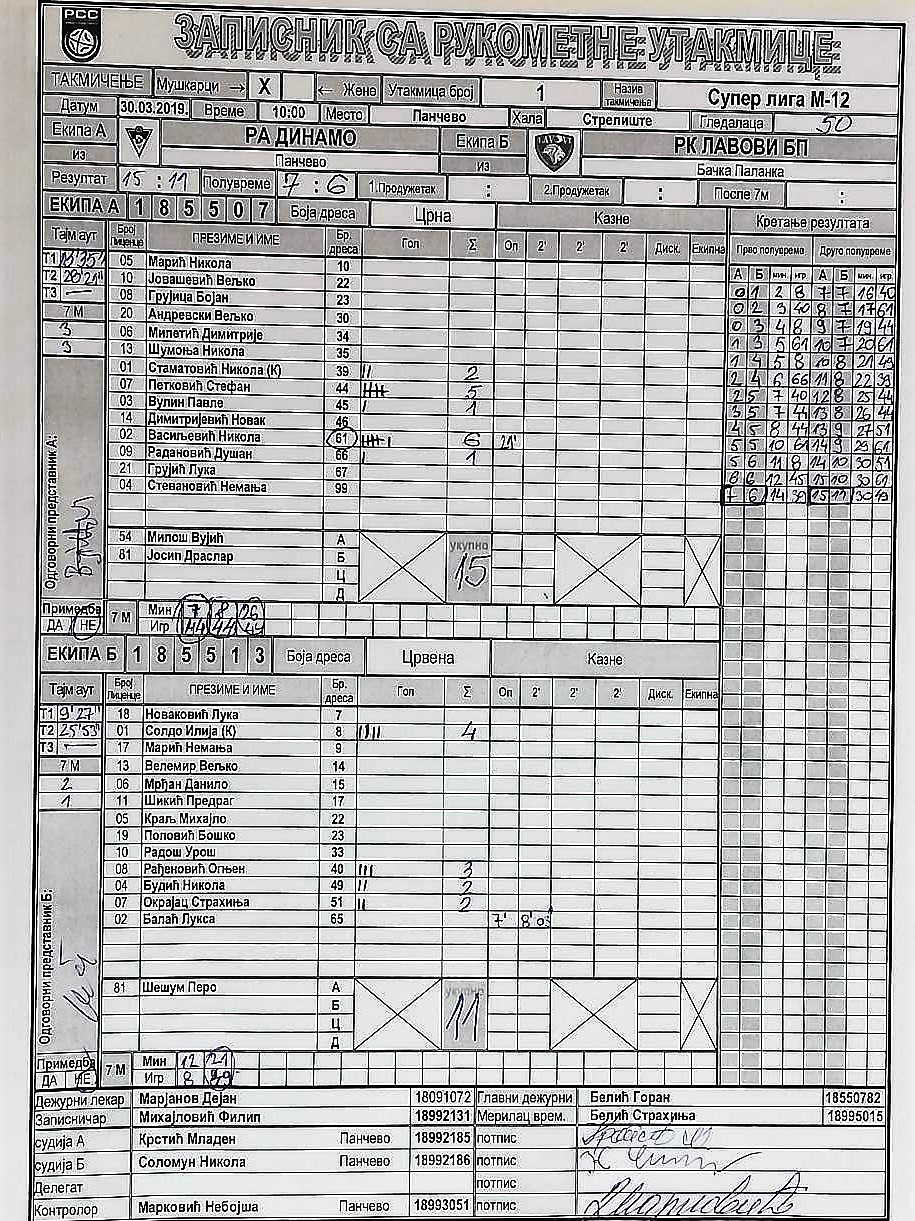 РСС
ЗАПИСНИК СА РУКОМЕТНЕ УТАКМИЦЕ
ТАКМИЧЕЊЕ Мушкарци → X ← Жене Утакмица број 1 Назив такмичења Супер лига М-12
Датум 30.03.2019. Време 10:00 Место Панчево Хала Стрелиште Гледалаца 50
Екипа А РА ДИНАМО Екипа Б РК ЛАВОВИ БП
из Панчево из Бачка Паланка
Резултат 15 : 11 Полувреме 7 : 6 1.Продужетак : 2.Продужетак : После 7м :
ЕКИПА А 1 8 5 5 0 7 Боја дреса Црна Казне Кретање резултата
Тајм аут Број Лиценце ПРЕЗИМЕ И ИМЕ Бр. дреса Гол Σ Оп 2' 2' 2' Диск. Екипна Прво полувреме Друго полувреме
А Б мин. игр. А Б мин. игр.
Т1 05 Марић Никола 10
Т2 28'21" 10 Јовашевић Вељко 22
Т3 — 08 Грујица Бојан 23
20 Андревски Вељко 30
7 М 06 Милетић Димитрије 34
3 13 Шумоња Никола 35
3 01 Стаматовић Никола (К) 39 II 2
07 Петковић Стефан 44 IIII 5
03 Вулин Павле 45 I 1
14 Димитријевић Новак 46
02 Васиљевић Никола 61 IIII I 6 21'
09 Радановић Душан 66 I 1
21 Грујић Лука 67
04 Стевановић Немања 99
0 1 2 8 7 7 16 40
0 2 3 40 8 7 17 61
0 3 4 8 9 7 19 44
1 3 5 61 10 7 20 61
1 4 5 8 10 8 21 49
2 4 6 66 11 8 22 39
2 5 7 40 12 8 25 44
3 5 7 44 13 8 26 44
4 5 8 44 13 9 27 51
5 5 10 61 14 9 29 61
5 6 11 8 14 10 30 51
6 6 12 45 15 10 30 61
7 6 14 39 15 11 30 49
Одговорни представник А:
54 Милош Вујић А укупно 15
81 Јосип Драслар Б
Ц
Д
Примедба 7 М Мин 7 8 26
ДА НЕ Игр 44 44 44
ЕКИПА Б 1 8 5 5 1 3 Боја дреса Црвена Казне
Тајм аут Број Лиценце ПРЕЗИМЕ И ИМЕ Бр. дреса Гол Σ Оп 2' 2' 2' Диск. Екипна
Т1 9'27" 18 Новаковић Лука 7
Т2 25'53" 01 Солдо Илија (К) 8 IIII 4
Т3 — 17 Марић Немања 9
7 М 13 Велемир Вељко 14
2 06 Мрђан Данило 15
1 11 Шикић Предраг 17
05 Краљ Михајло 22
19 Поповић Бошко 23
10 Радош Урош 33
08 Рађеновић Огњен 40 III 3
04 Будић Никола 49 II 2
07 Окрајац Страхиња 51 II 2
02 Балаћ Лукса 65 7' 8'03"
Одговорни представник Б:
81 Шешум Перо А укупно 11
Б
Ц
Д
Примедба 7 М Мин 12 21
ДА НЕ Игр 8 49
Дежурни лекар Марјанов Дејан 18091072 Главни дежурни Белић Горан 18550782
Записничар Михајловић Филип 18992131 Мерилац врем. Белић Страхиња 18995015
судија А Крстић Младен Панчево 18992185 потпис
судија Б Соломун Никола Панчево 18992186 потпис
Делегат потпис
Контролор Марковић Небојша Панчево 18993051 потпис